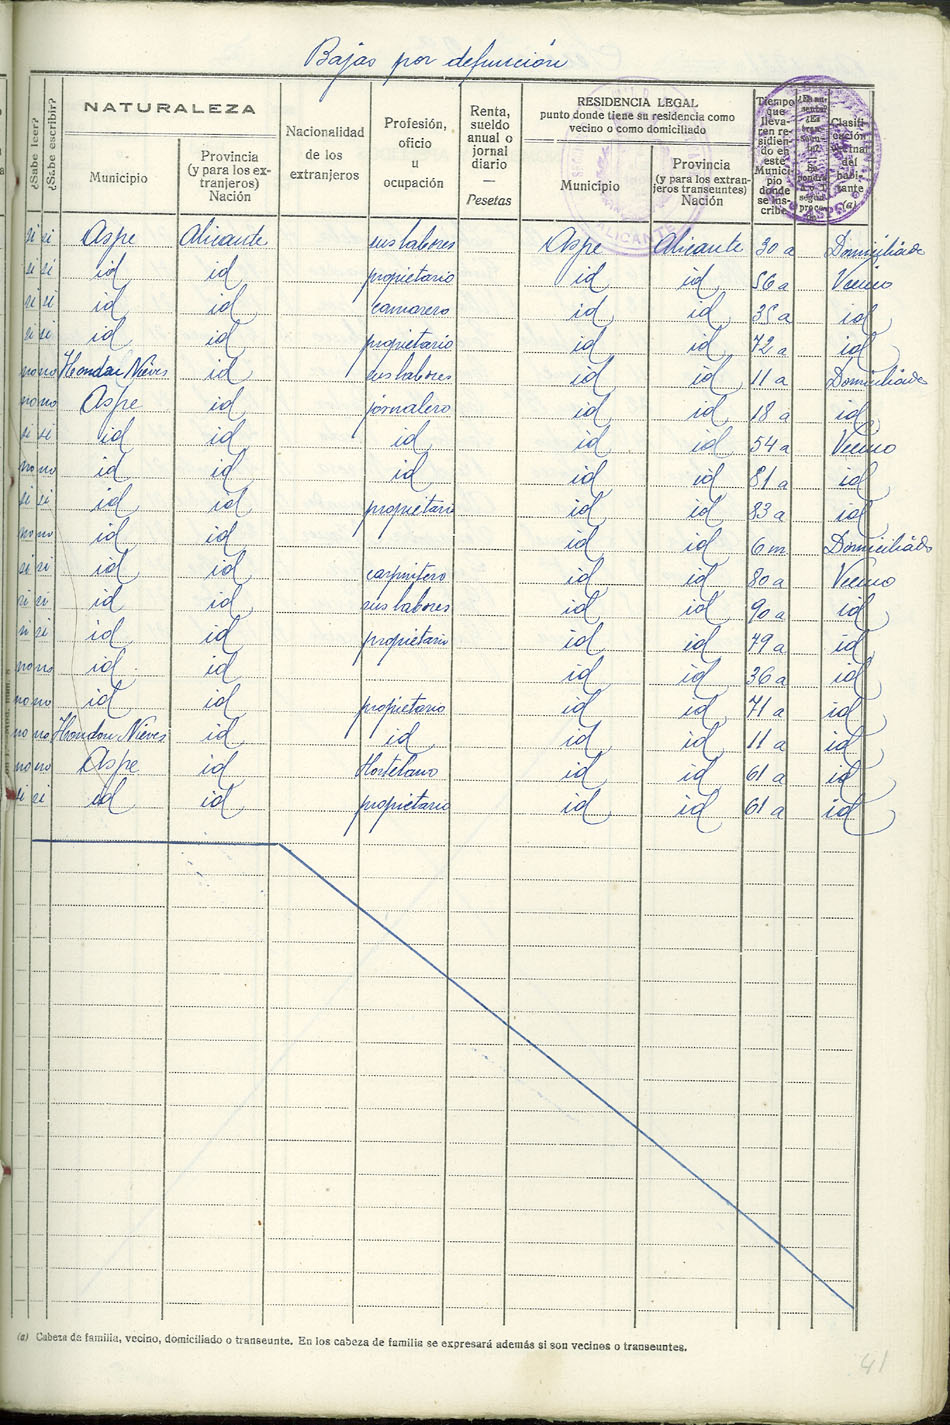 Bajas por defunción
¿Sabe leer?
¿Sabe escribir?
NATURALEZA
Municipio
Provincia
(y para los ex-
tranjeros)
Nación
Nacionalidad
de los
extranjeros
Profesión,
oficio
u
ocupación
Renta,
sueldo
anual o
jornal
diario
—
Pesetas
RESIDENCIA LEGAL
punto donde tiene su residencia como
vecino o como domiciliado
Municipio
Provincia
(y para los extran-
jeros transeuntes)
Nación
Tiempo
que
lleva-
ren re-
sidien-
do en
este
Munici-
pio
donde
se ins-
cribe
Clasifi-
cación
del
habi-
tante
(a)
ALICANTE
ASPE
si si Aspe Alicante sus labores Aspe Alicante 30 a Domiciliado
si si id id propietario id id 56 a Vecino
si si id id camarero id id 35 a id
si si id id propietario id id 72 a id
no no Hondon Nieves id sus labores id id 11 a Domiciliado
no no Aspe id jornalero id id 18 a id
si si id id id id id 54 a Vecino
no no id id id id id 81 a id
si si id id propietario id id 83 a id
no no id id id id 6 m Domiciliado
si si id id carpintero id id 80 a Vecino
si si id id sus labores id id 90 a id
si si id id propietario id id 79 a id
no no id id id id 36 a id
no no id id propietario id id 71 a id
no no Hondon Nieves id id id id 11 a id
no no Aspe id Hortelano id id 61 a id
si si id id propietario id id 61 a id
(a) Cabeza de familia, vecino, domiciliado o transeunte. En los cabeza de familia se expresará además si son vecinos o transeuntes.
41